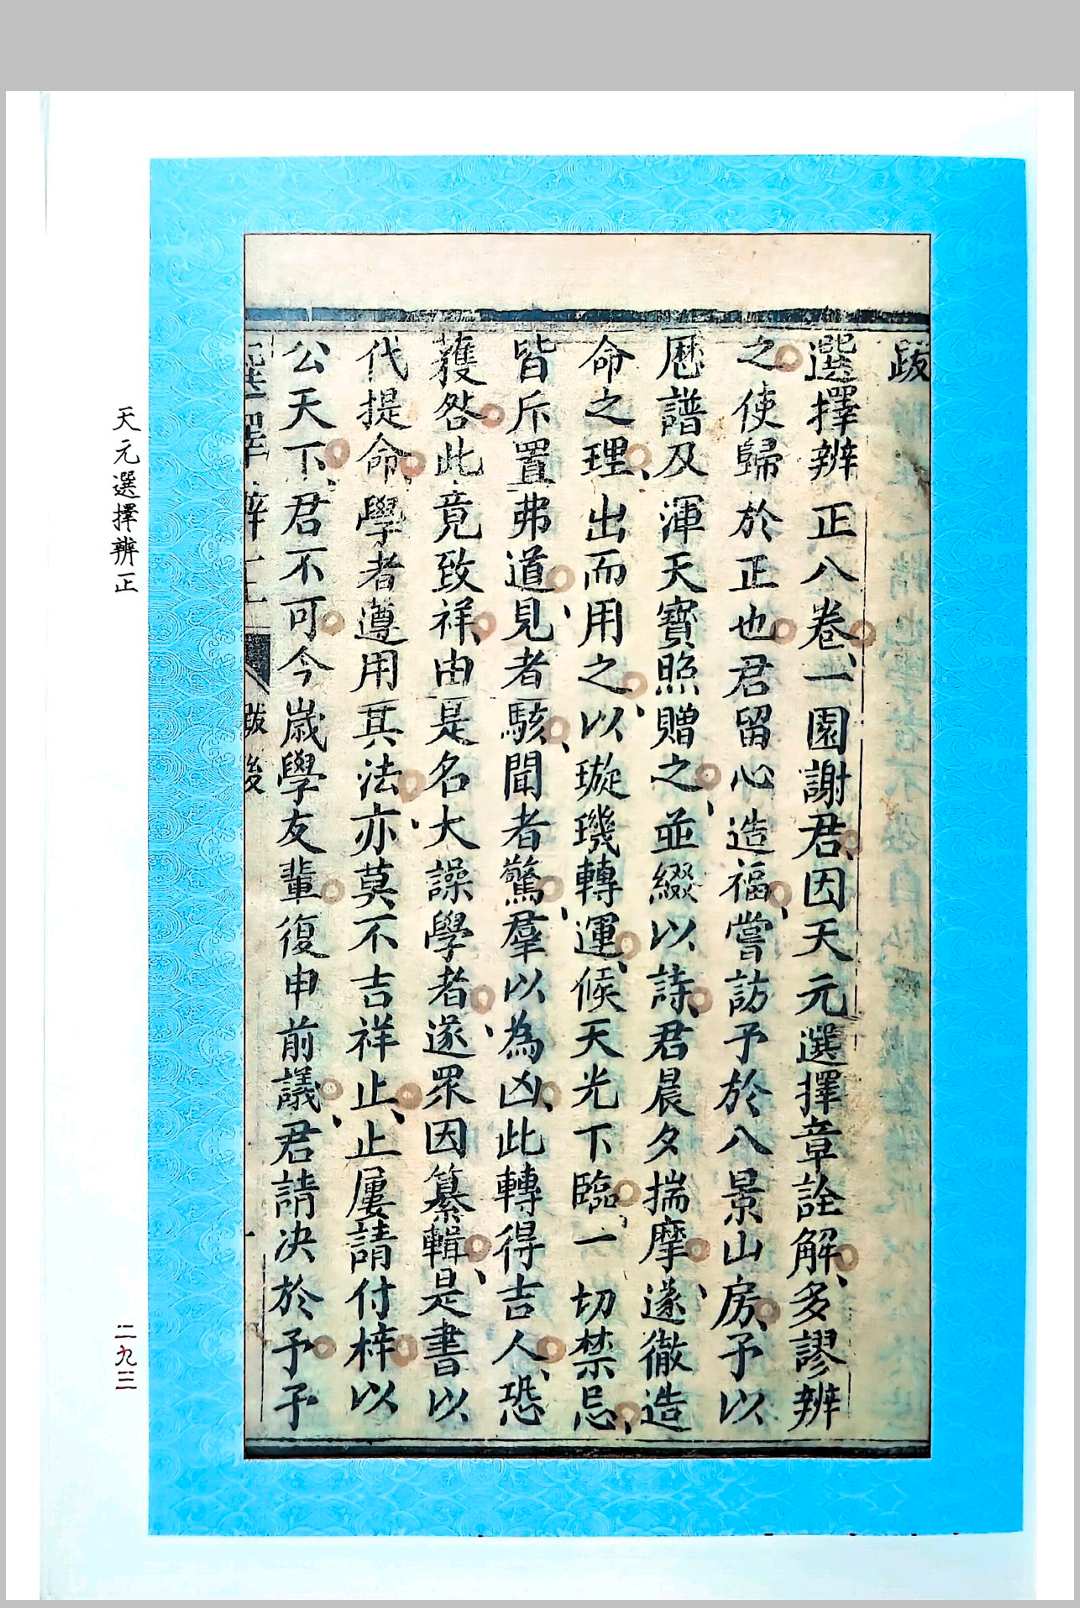 跋
選擇辨正八卷、一園謝君、因天元選擇章詮解、多謬辨
之使歸於正也君留心造福、嘗訪予於八景山房、予以
曆譜及渾天寳照贈之、並綴以詩、君晨夕揣摩、遂徹造
命之理、出而用之、以璇璣轉運、候天光下臨、一切禁忌、
皆斥置弗道、見者駭、聞者驚、羣以為凶、此轉得吉人、恐
獲咎、此竟致祥、由是名大譟學者、遂眾因纂輯、是書以
代提命、學者遵用其法、亦莫不吉祥止、止屢請付梓以
公天下、君不可今歲學友輩復申前議、君請决於予予
選擇辨正
跋後
一
天元選擇辨正
二九三